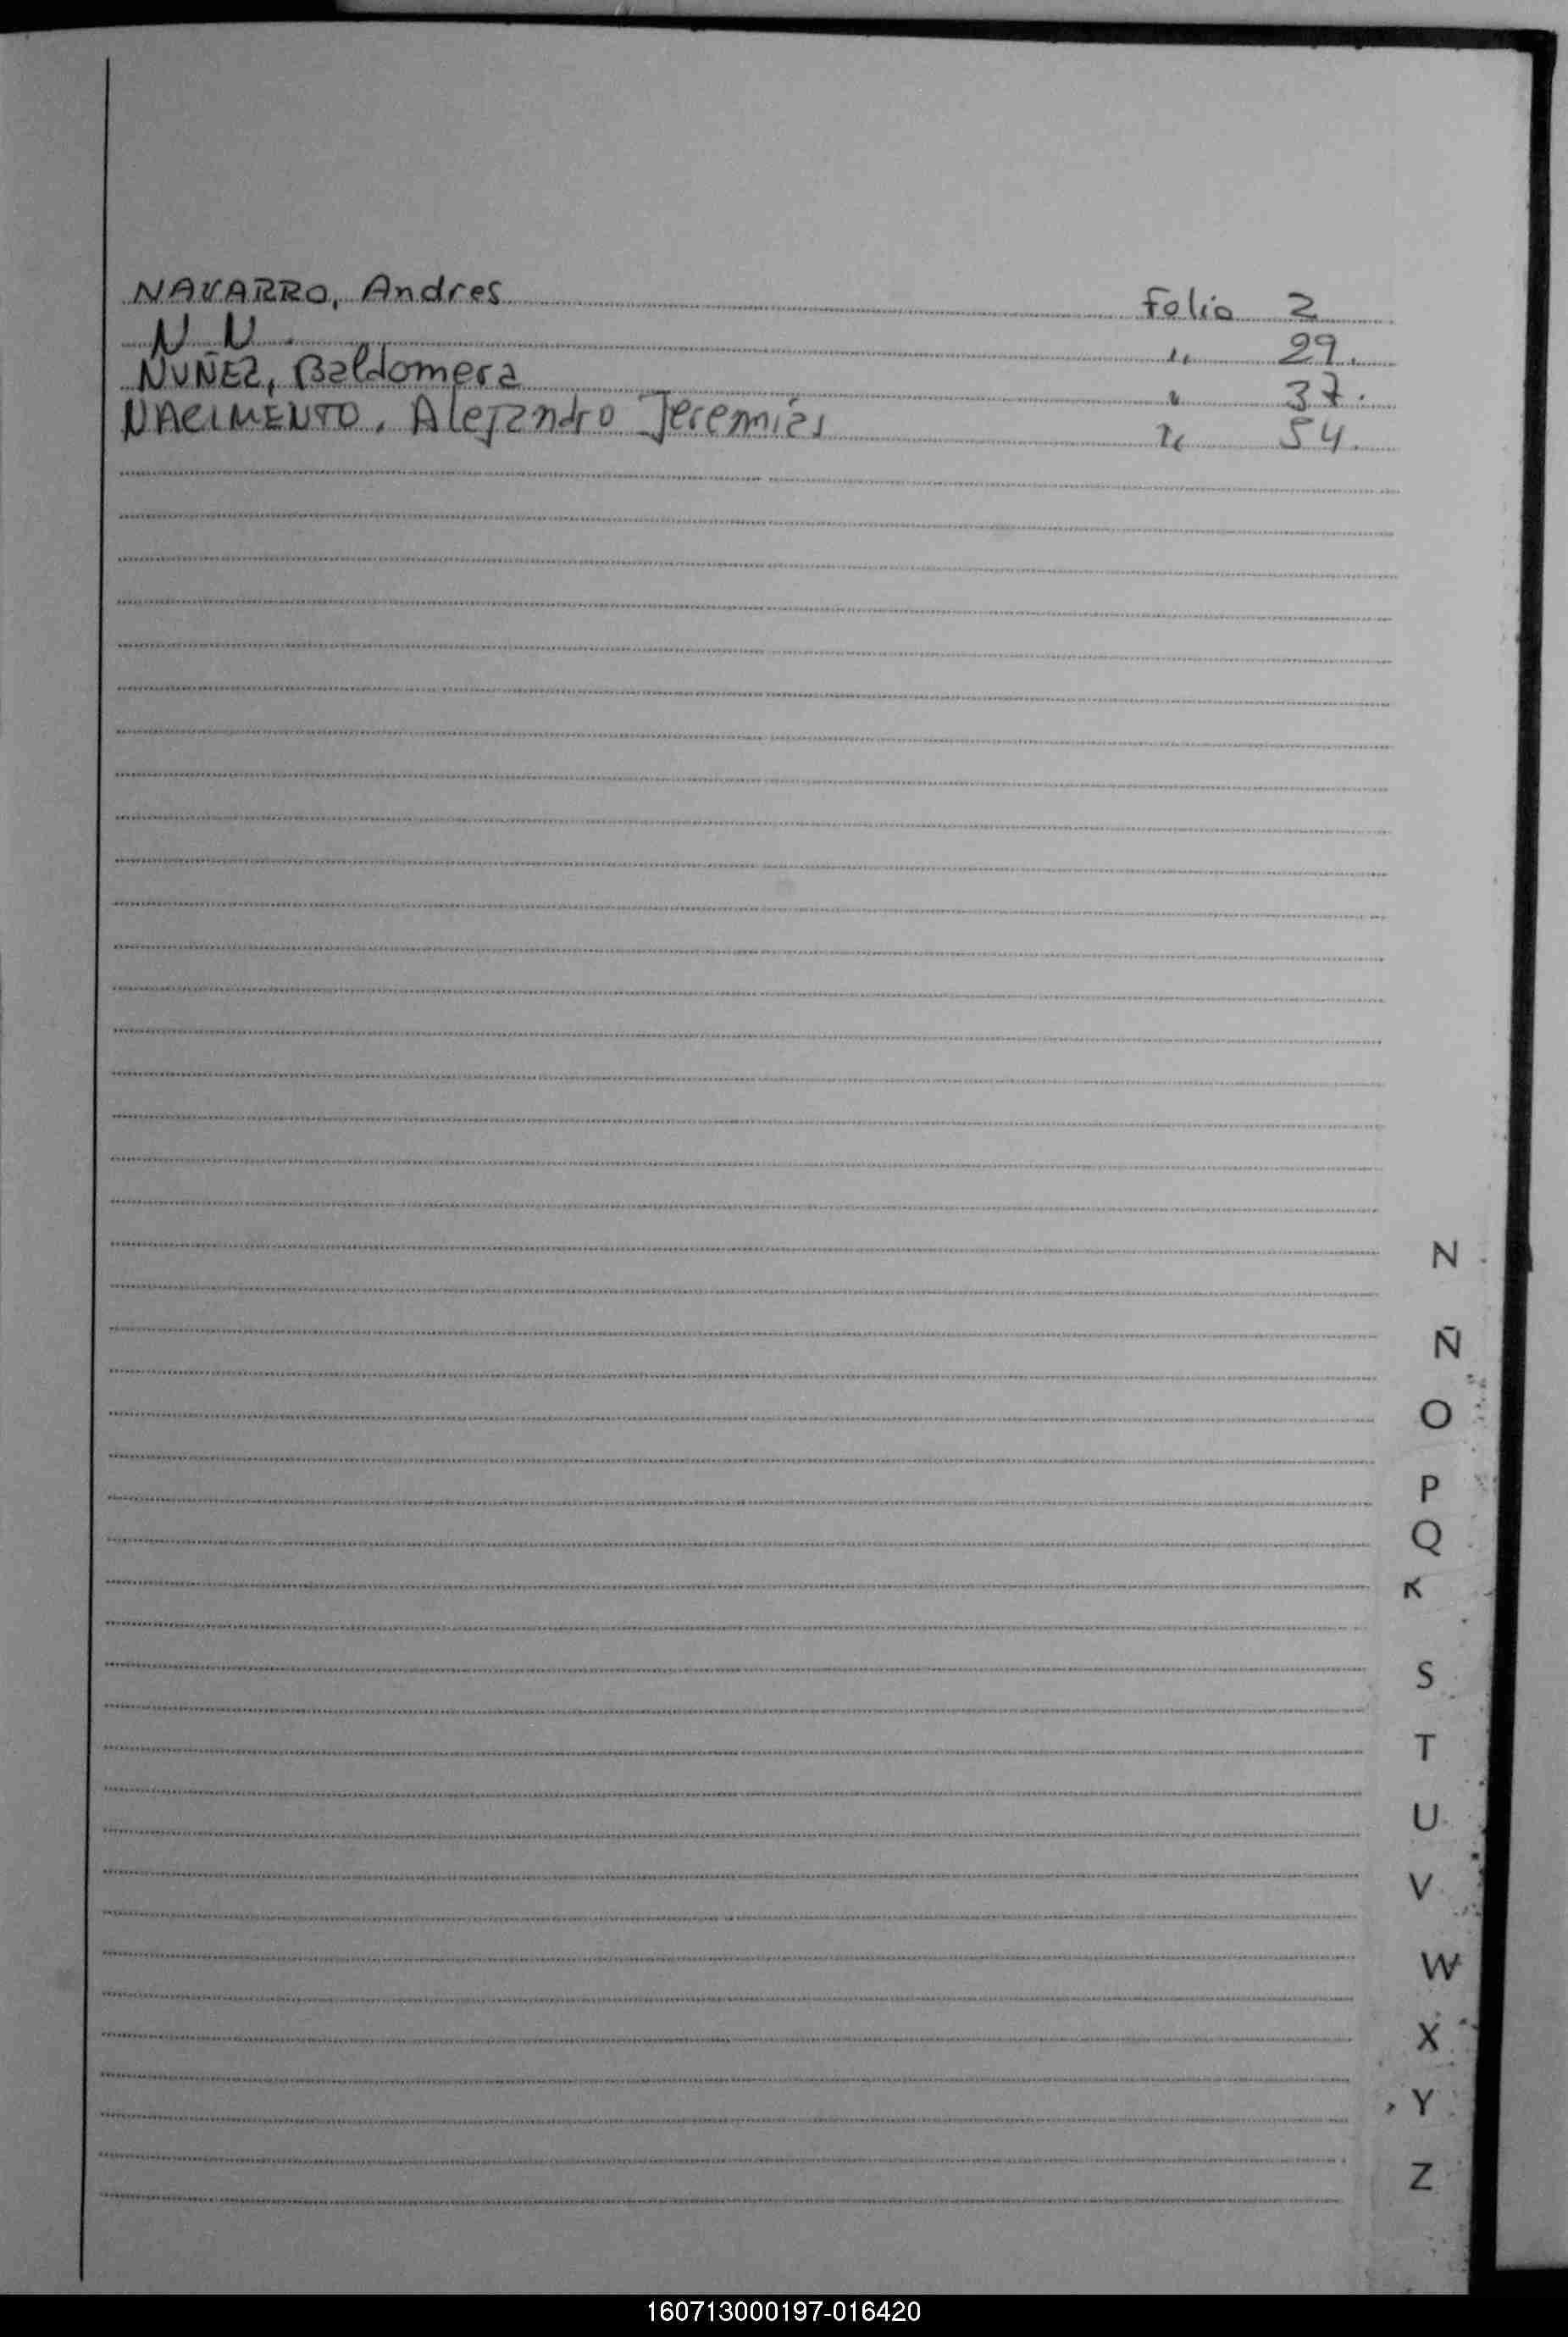 NAVARRO, Andres Folio 2
N N. " 29.
NUÑEZ, Baldomera " 37.
NACIMENTO, Alejandro Jeremias " 54.
N
Ñ
O
P
Q
R
S
T
U
V
W
X
Y
Z
160713000197-016420